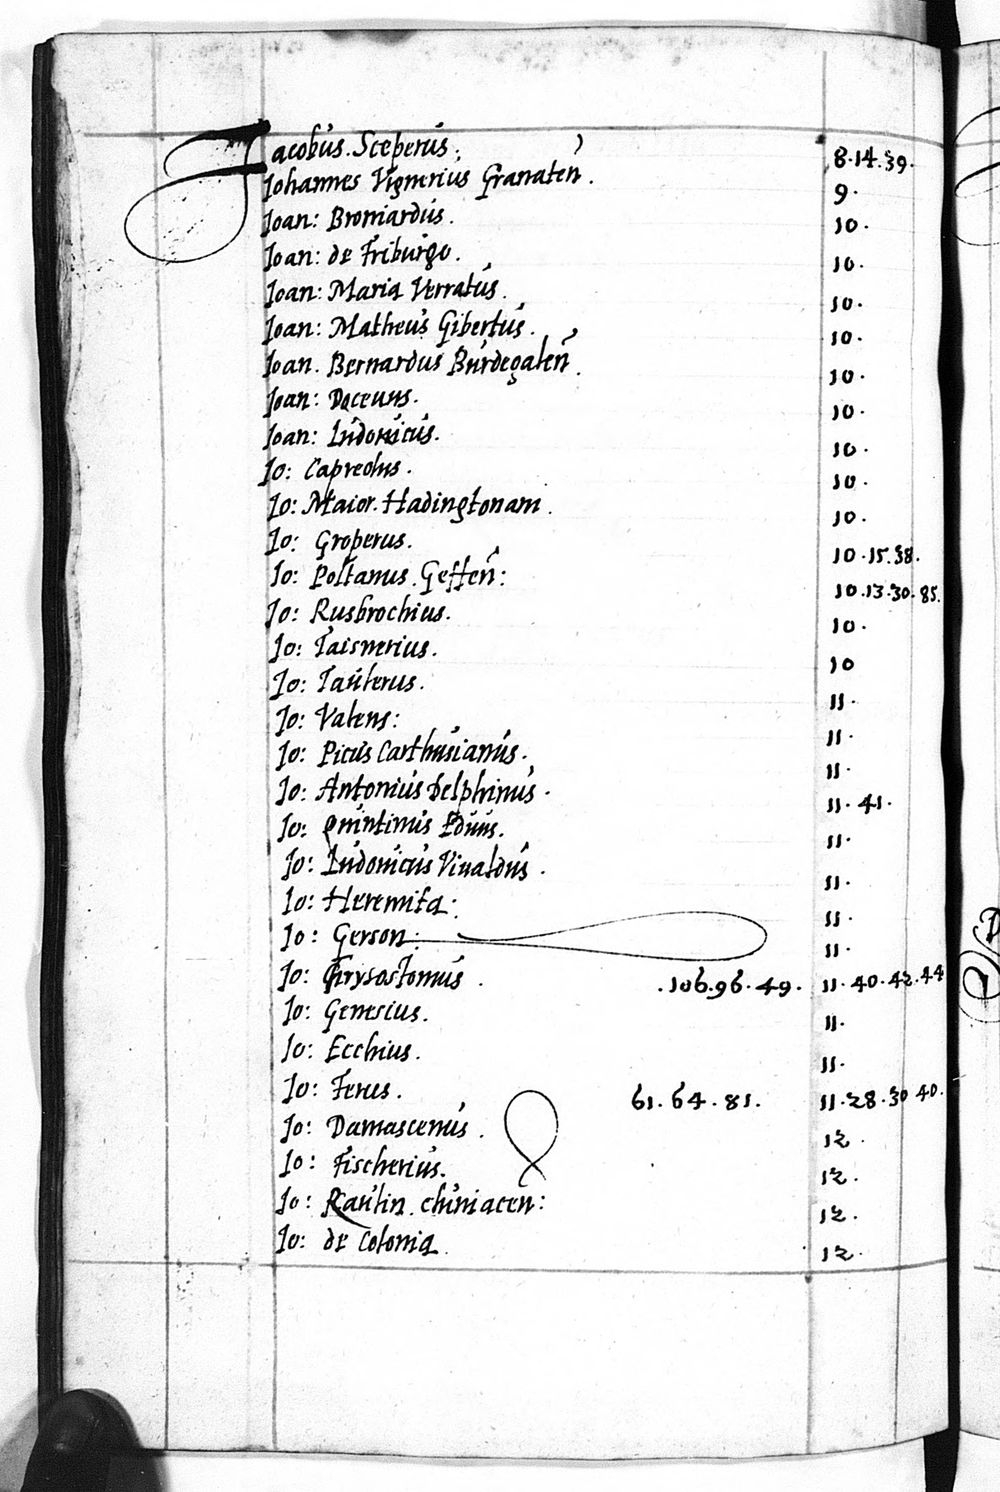 Jacobus Sceperus: 8.14.39.
Johannes Viguerius Granaten̄. 9.
Joan: Bromiardus. 10.
Joan: de Friburgo. 10.
Joan: Maria Verratus. 10.
Joan: Matheus Gibertus. 10.
Joan. Bernardus Burdegalen̄. 10.
Joan: Doceuus. 10.
Joan: Ludovicus. 10.
Jo: Capreolus. 10.
Jo: Maior. Hadingtonam. 10.
Jo: Groperus. 10.15.38.
Jo: Poltanus. Geffen̄: 10.13.30.85.
Jo: Rusbrochius. 10.
Jo: Taisnerius. 10
Jo: Taulerus. 11.
Jo: Valens: 11.
Jo: Picus Carthusianus. 11.
Jo: Antonius Delphinus. 11.41.
Jo: Quintinus Eduus. 11.
Jo: Ludovicus Vivaldus. 11.
Jo: Heremita: 11.
Jo: Gerson: 11.
Jo: Chrysostomus. .106.96.49. 11.40.42.44
Jo: Genesius. 11.
Jo: Ecchius. 11.
Jo: Ferus. 61.64.81. 11.28.30 40.
Jo: Damascenus. 12.
Jo: Fischerius. 12.
Jo: Raulin. cluniacen̄: 12.
Jo: de Colonia. 12.